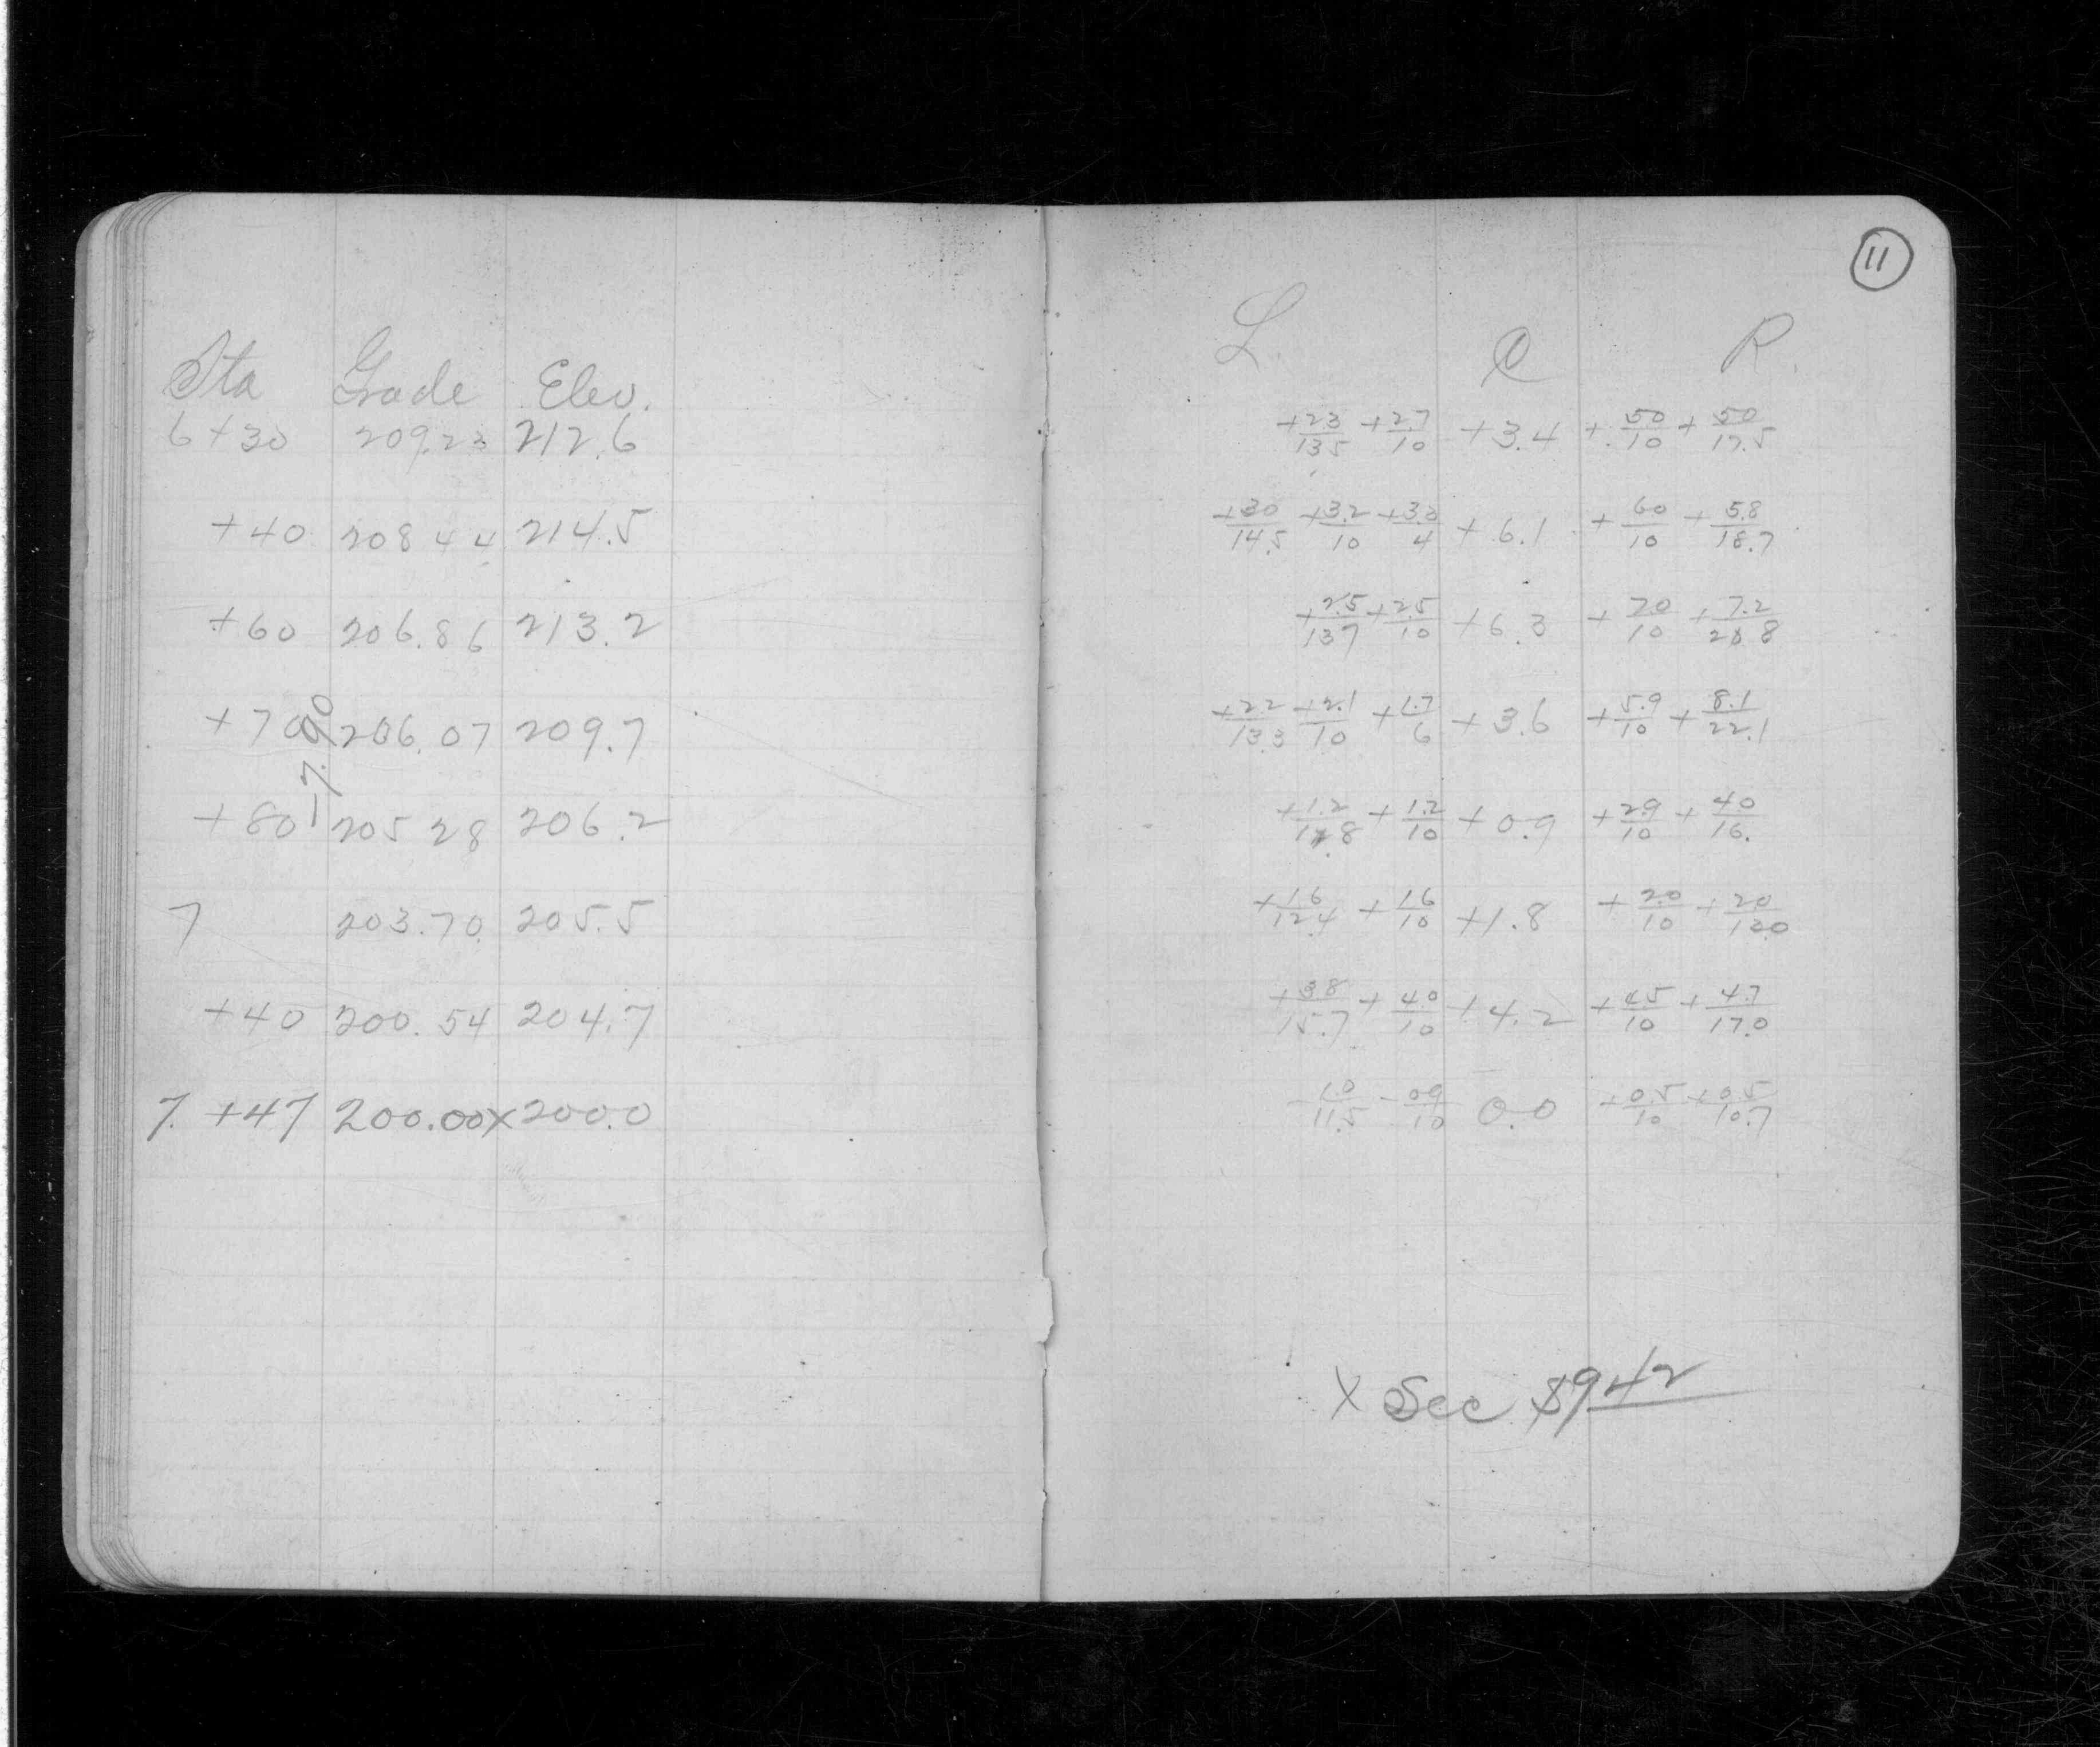 Sta Grade Elev.
6+30 209.23 212.6
+40 208 44 214.5
+60 206.86 213.2
+70 206.07 209.7
+80 205 28 206.2
7 203.70 205.5
+40 200.54 204.7
7. +47 200.00 x 200.0
11
L. C R.
+23/135 +2.7/10 +3.4 +50/10 +50/17.5
+30/14.5 +3.2/10 +3.8/4 +6.1 +60/10 +5.8/18.7
+2.5/137 +25/10 +6.3 +70/10 +7.2/20 8
+22/13.3 +2.1/10 +1.7/6 +3.6 +5.9/10 +8.1/22.1
+1.2/11.8 +1.2/10 +0.9 +29/10 +40/16.
+16/12.4 +16/10 +1.8 +2.0/10 +20/130
+38/15.7 +40/10 +4.2 +45/10 +4.7/17.0
-10/11.5 -09/10 0.0 +0.5/10 +0.5/10.7
X Sec $942